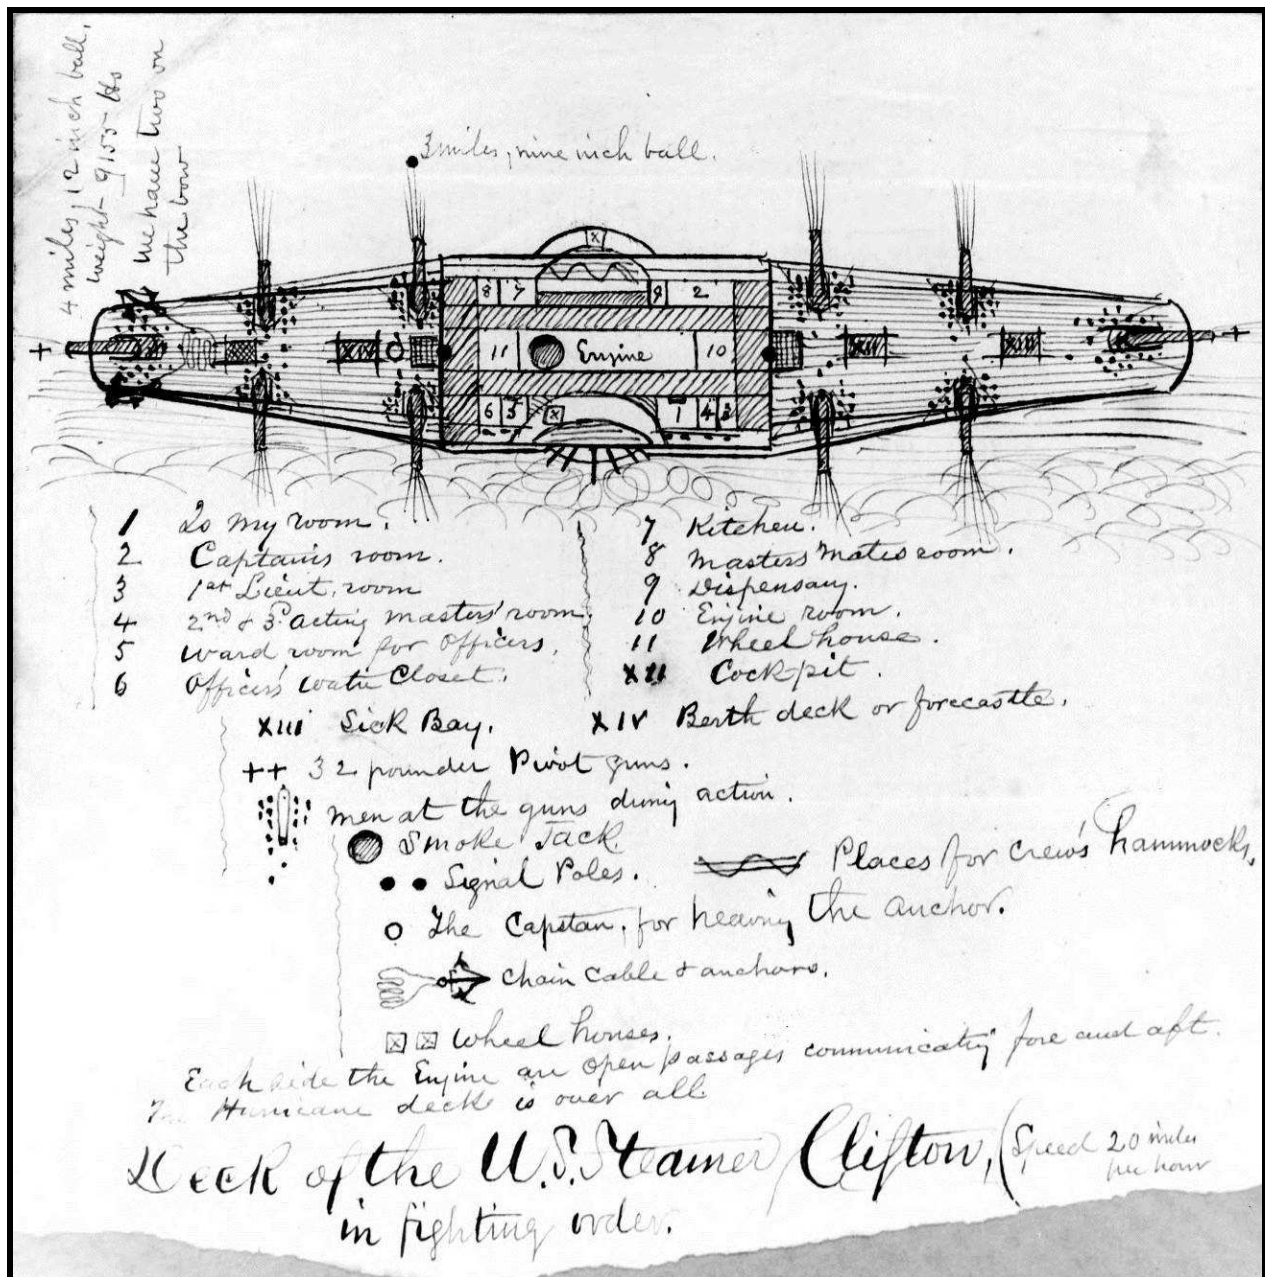 4 miles, 12 inch ball.
weight
we have two on
the bow
3 miles, nine inch ball.
8 7 9 2
11 Engine 10
6 5 1 4 3
XIV XII XIII
1 Is my room.
2 Captain's room.
3 1st Lieut. room
4 2nd & 3d acting masters' room
5 Ward room for Officers.
6 Officers water Closet.
7 Kitchen.
8 Masters' Mates room.
9 Dispensary.
10 Engine room.
11 Wheel house.
XII Cock-pit.
XIII Sick Bay.
XIV Berth deck or forecastle.
++ 32 pounder Pivot guns.
men at the guns during action.
Smoke Jack.
Signal Poles.
Places for crew's hammocks.
The Capstan, for heaving the anchor.
Chain cable & anchors.
Wheel houses.
Each side the Engine are open passages communicating fore and aft.
The Hurricane deck is over all.
Deck of the U.S. Steamer Clifton, (Speed 20 miles
per hour
in fighting order.